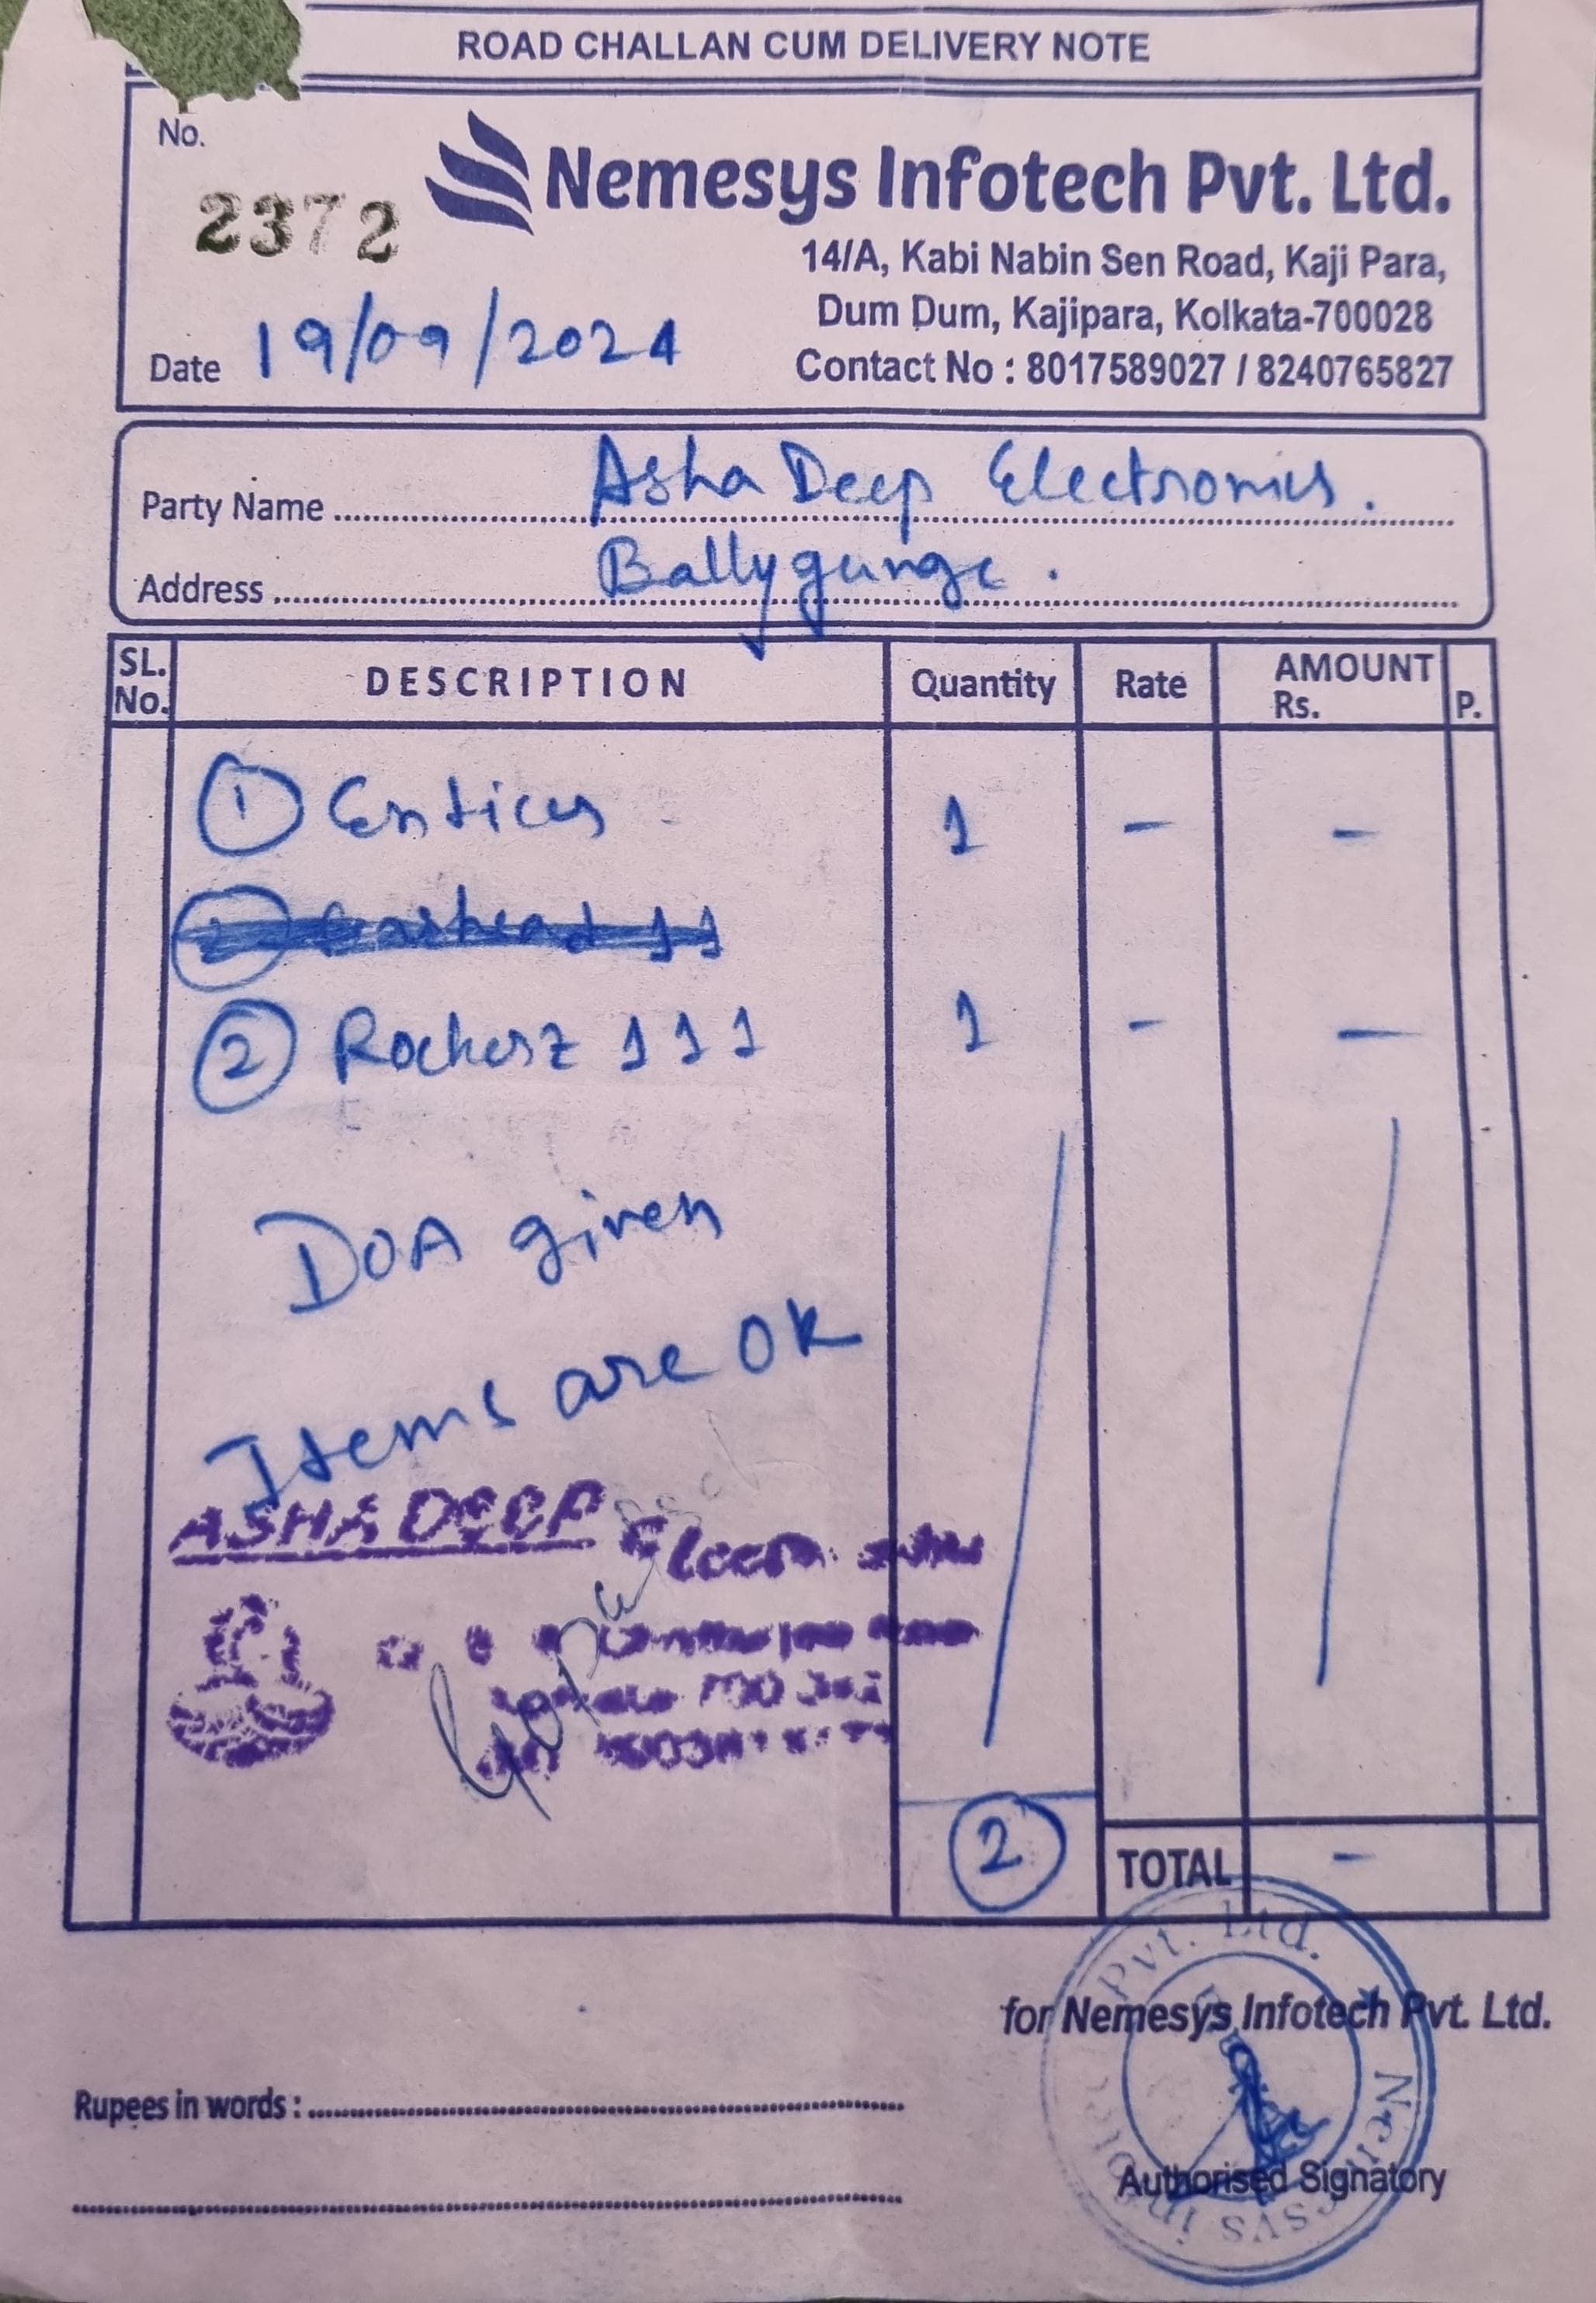 ROAD CHALLAN CUM DELIVERY NOTE
No.
2372
Nemesys Infotech Pvt. Ltd.
14/A, Kabi Nabin Sen Road, Kaji Para,
Dum Dum, Kajipara, Kolkata-700028
Contact No : 8017589027 / 8240765827
Date 19/09/2024
Party Name Asha Deep Electronics.
Address Ballygunge.
SL. No. DESCRIPTION Quantity Rate AMOUNT Rs. P.
① 1 - -
② Rockerz 111 1 - -
DOA given
Items are OK
ASHA DEEP
2
TOTAL -
for Nemesys Infotech Pvt. Ltd.
Rupees in words :
Authorised Signatory